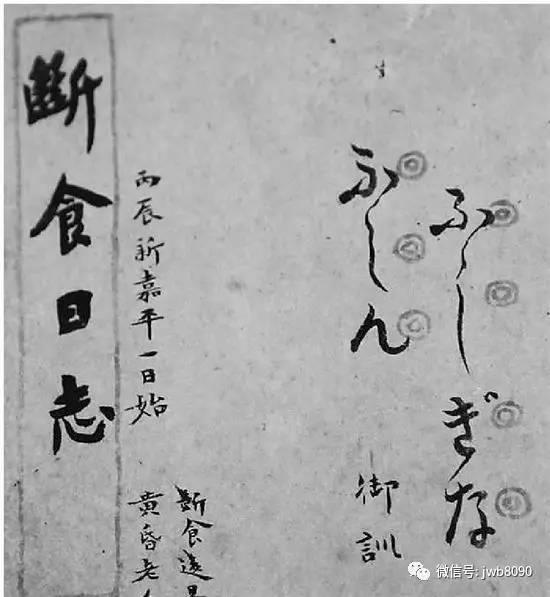 ふしぎな
ふしん
御訓
斷食
丙辰新嘉平一日始
黃昏老
斷食日志
微信号: jwb8090